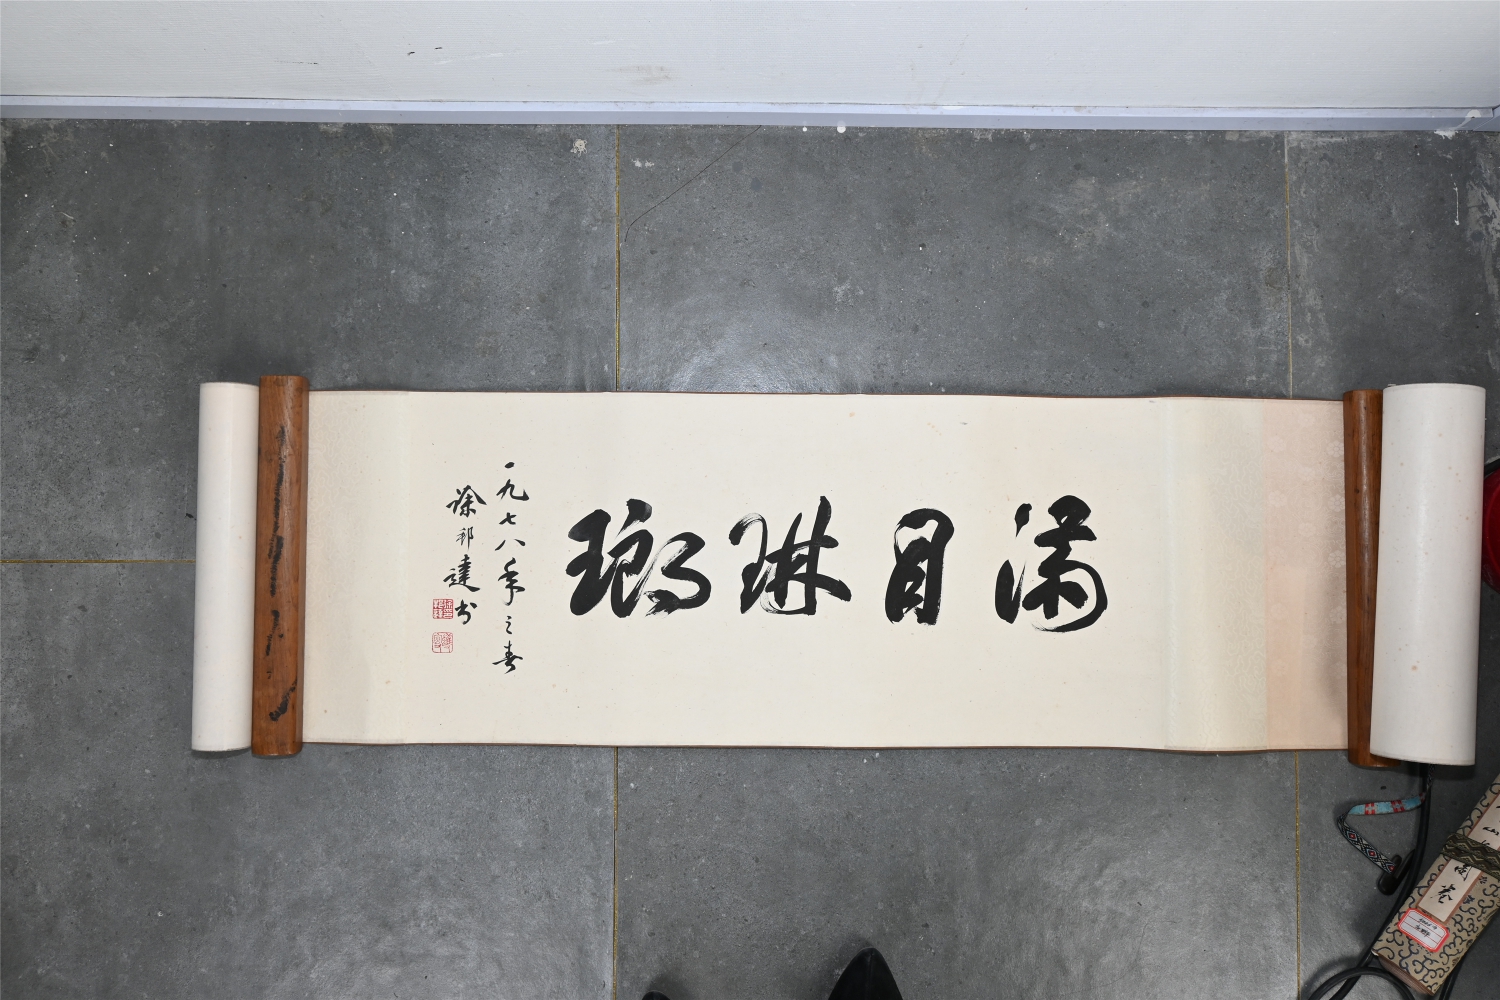 滿目琳瑯
一九七八年之春
徐邦達书